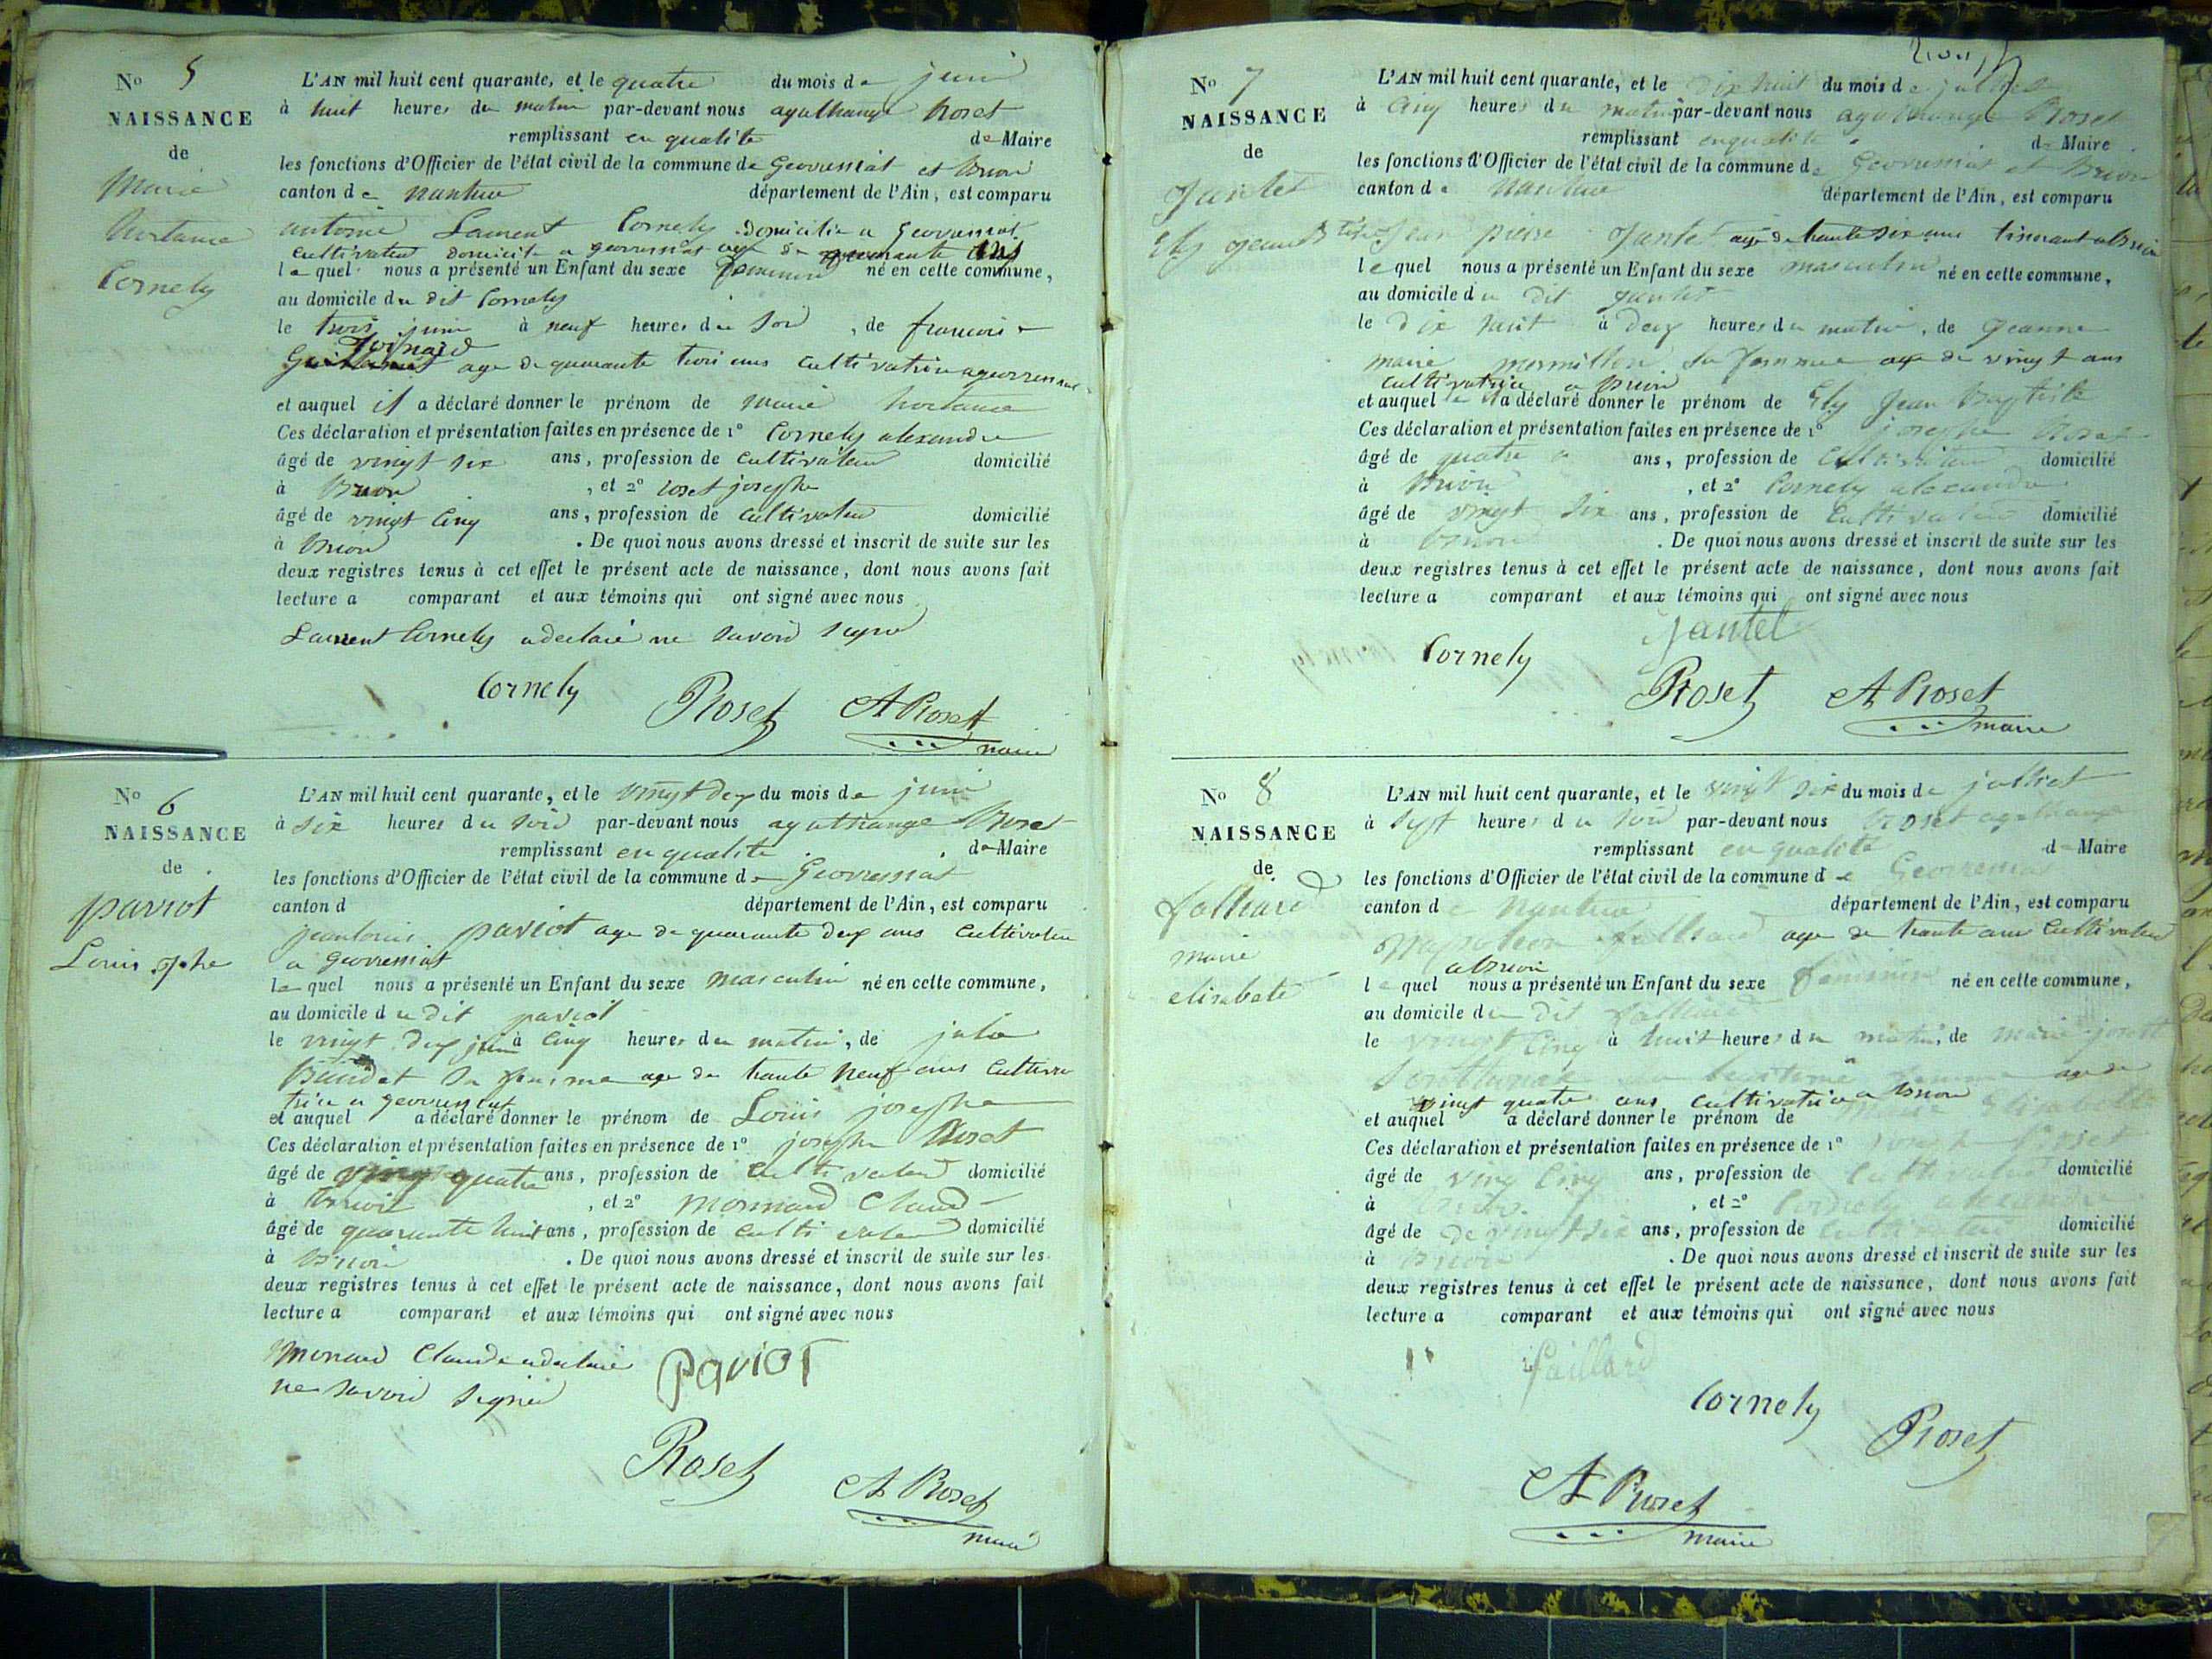 N° 5
NAISSANCE
de
Marie
hortance
Cornely
L'AN mil huit cent quarante, et le quatre du mois de juin
à huit heures du matin par-devant nous agathange Roset
remplissant en qualité de Maire
les fonctions d'Officier de l'état civil de la commune de Geovressiat et Brion
canton de nantua département de l'Ain, est comparu
antoine Laurent Cornely domicilié a Geovressiat
cultivateur domicilié a geovressiat age de quarante ans
le quel nous a présenté un Enfant du sexe feminin né en cette commune,
au domicile du dit Cornely
le trois juin à neuf heures du soir, de francoise
Goinard
age de quarante trois ans cultivatrice a geovressiat
et auquel il a déclaré donner le prénom de marie hortance
Ces déclaration et présentation faites en présence de 1° Cornely alexandre
âgé de vingt six ans, profession de cultivateur domicilié
à Brion, et 2° roset josephe
âgé de vingt cinq ans, profession de cultivateur domicilié
à Brion. De quoi nous avons dressé et inscrit de suite sur les
deux registres tenus à cet effet le présent acte de naissance, dont nous avons fait
lecture a comparant et aux témoins qui ont signé avec nous
Laurent Cornely a declaré ne savoir signe
Cornely Roset A Roset
maire
N° 6
NAISSANCE
de
paviot
Louis jphe
L'AN mil huit cent quarante, et le vingt deux du mois de juin
à six heures du soir par-devant nous agathange Roset
remplissant en qualité de Maire
les fonctions d'Officier de l'état civil de la commune de Geovressiat
canton d département de l'Ain, est comparu
jean louis paviot age de quarante deux ans cultivateur
a geovressiat
le quel nous a présenté un Enfant du sexe masculin né en cette commune,
au domicile du dit paviot
le vingt deux juin à cinq heures du matin, de julie
Baudet sa femme age de trante neuf ans cultiva
trice a geovressiat
et auquel a déclaré donner le prénom de Louis josephe
Ces déclaration et présentation faites en présence de 1° josephe Roset
âgé de vingt quatre ans, profession de cultivateur domicilié
à Brion, et 2° Monnard Claude
âgé de quarante huit ans, profession de cultivateur domicilié
à Brion. De quoi nous avons dressé et inscrit de suite sur les
deux registres tenus à cet effet le présent acte de naissance, dont nous avons fait
lecture a comparant et aux témoins qui ont signé avec nous
Monard Claude a declaré
ne savoir signer
PavioT
Roset
A Roset
maire
N° 7
NAISSANCE
de
Jantet
Ely jean Btiste
L'AN mil huit cent quarante, et le dix huit du mois de julliet
à cinq heures du matin par-devant nous agathange Roset
remplissant en qualité de Maire
les fonctions d'Officier de l'état civil de la commune de Geovressiat et Brion
canton de Nantua département de l'Ain, est comparu
Jean pierre Jantet agé de trante six ans tisserant a brion
le quel nous a présenté un Enfant du sexe masculin né en cette commune,
au domicile du dit jantet
le dix huit à deux heures du matin, de jeanne
marie mermillon sa femme age de vingt ans
cultivatrice a brion
et auquel il a déclaré donner le prénom de Ely Jean Baptiste
Ces déclaration et présentation faites en présence de 1° josephe Roset
âgé de quatre ans, profession de Cultivateur domicilié
à Brion, et 2° Cornely alexandre
âgé de vingt six ans, profession de Cultivateur domicilié
à Brion. De quoi nous avons dressé et inscrit de suite sur les
deux registres tenus à cet effet le présent acte de naissance, dont nous avons fait
lecture a comparant et aux témoins qui ont signé avec nous
Jantet
Cornely
Roset A Roset
maire
N° 8
NAISSANCE
de
falliard
marie
elisabete
L'AN mil huit cent quarante, et le vingt six du mois de julliet
à sept heures du soir par-devant nous Roset agathange
remplissant en qualité de Maire
les fonctions d'Officier de l'état civil de la commune de Geovressiat
canton de Nantua département de l'Ain, est comparu
Napoleon falliard age de trante ans cultivateur
a brion
le quel nous a présenté un Enfant du sexe feminin né en cette commune,
au domicile du dit falliard
le vingt cinq à huit heures du matin, de marie
sa legitime femme age de
vingt quatre ans cultivatrice a brion
et auquel a déclaré donner le prénom de
Ces déclaration et présentation faites en présence de 1° joseph Roset
âgé de ving cinq ans, profession de Cultivateur domicilié
à Brion, et 2° Cornely alexandre
âgé de de vingt six ans, profession de cultivateur domicilié
à Brion. De quoi nous avons dressé et inscrit de suite sur les
deux registres tenus à cet effet le présent acte de naissance, dont nous avons fait
lecture a comparant et aux témoins qui ont signé avec nous
faillard
Cornely
Roset
A Roset
maire